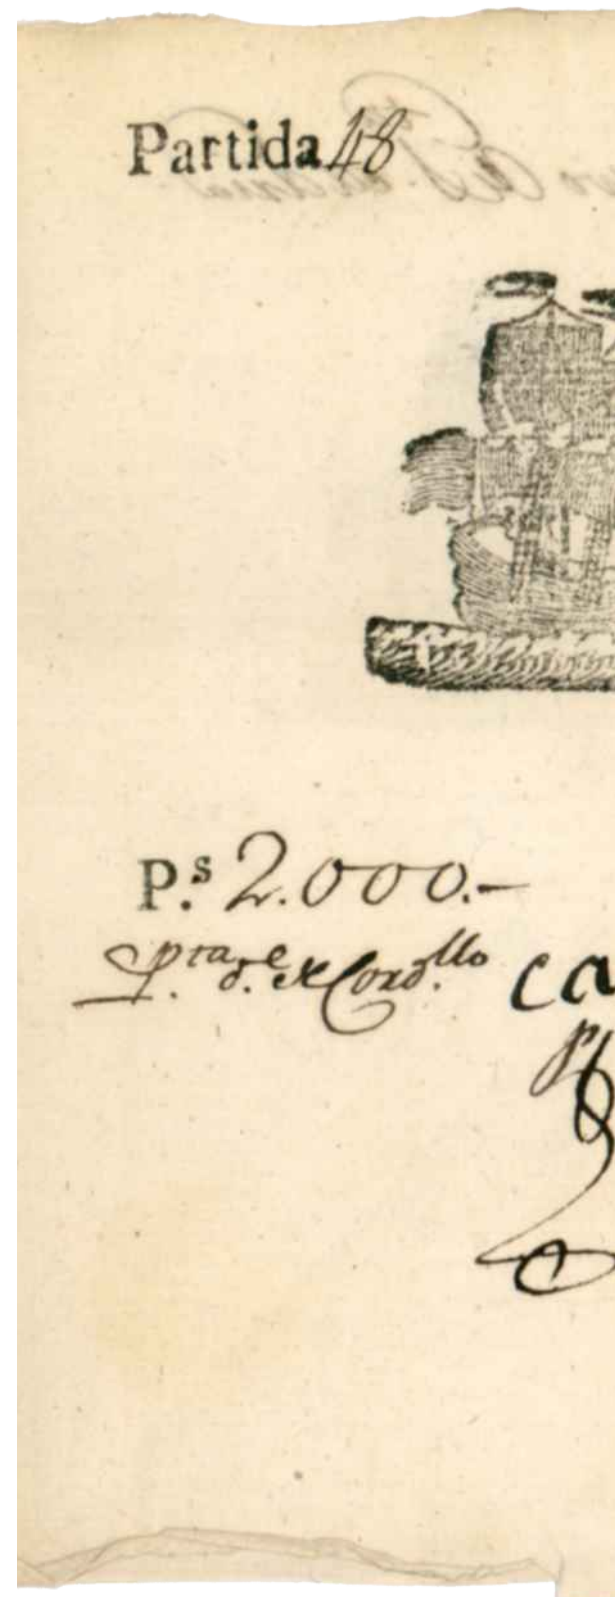 Partida 48
P.s 2.000.-
Pta d.e Cord.llo
ca